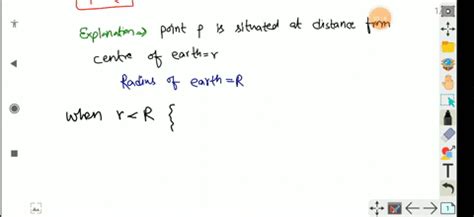 Explanation⇒ point p is situated at distance from
centre of earth=r
Radius of earth=R
when r<R {